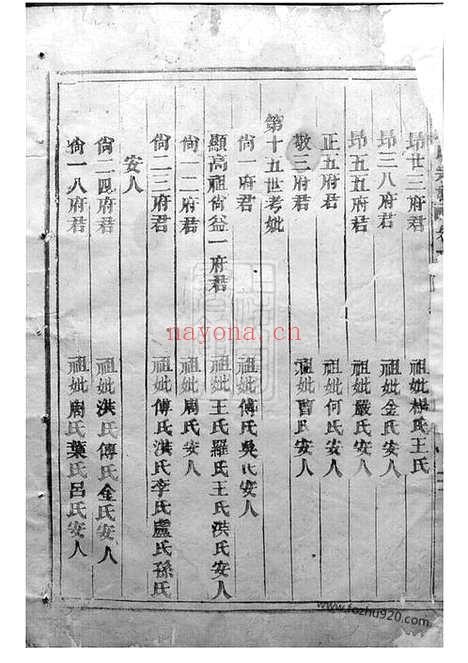 昂世三府君 祖妣楼氏王氏
昂三八府君 祖妣金氏安人
昂五五府君 祖妣嚴氏安人
正五府君 祖妣何氏安人
敬三府君 祖妣曹氏安人
第十五世考妣
尙一府君 祖妣傅氏吳氏安人
顯高祖尙益一府君 祖妣王氏羅氏王氏洪氏安人
尙一二府君 祖妣周氏安人
尙二三府君 祖妣傅氏洪氏李氏盧氏孫氏
安人
尙二四府君 祖妣洪氏傅氏金氏安人
尙一八府君 祖妣周氏葉氏呂氏安人
nayona.cn
www.fozhu920.com